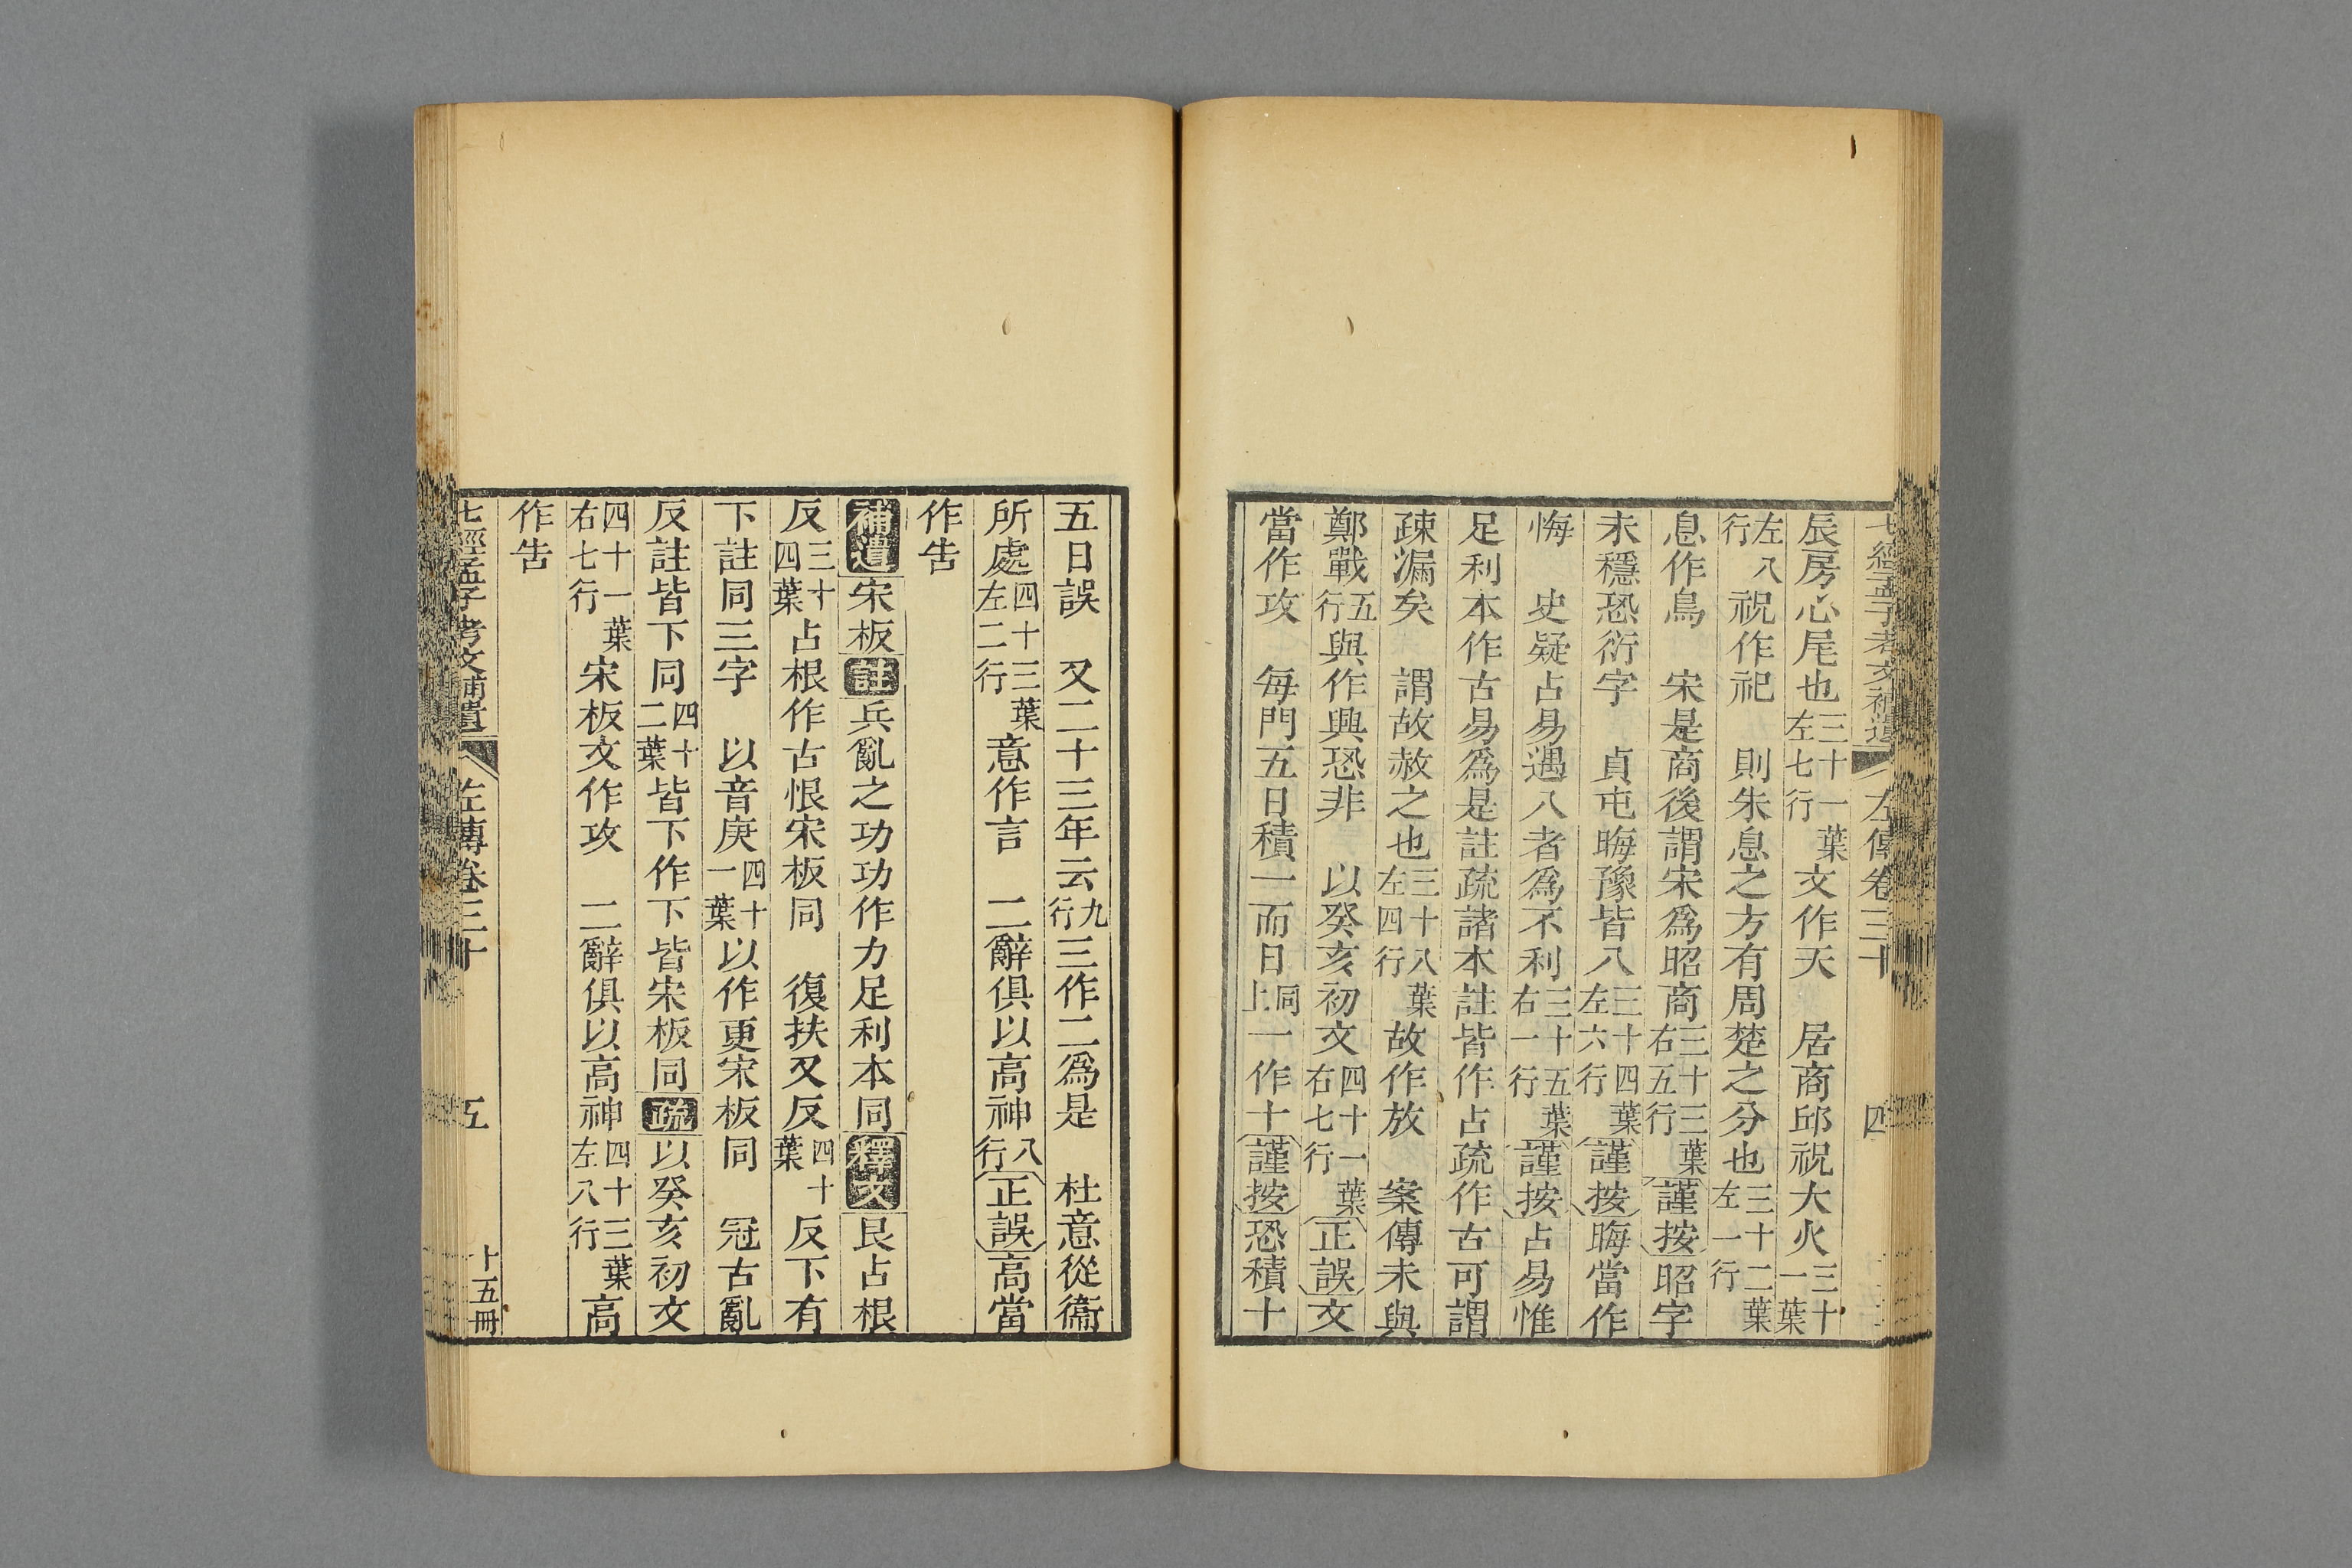 七經孟子考文補遺 左傳卷三十 四
辰房心尾也三十一葉左七行文作天 居商邱祝大火三十一葉
左八行祝作祀 則朱息之方有周楚之分也三十二葉左一行
息作鳥 宋是商後謂宋爲昭商三十三葉右五行謹按昭字
未穩恐衍字 貞屯晦豫皆八三十四葉左六行謹按晦當作
悔 史疑占易遇八者爲不利三十五葉右一行謹按占易惟
足利本作古易爲是註疏諸本註皆作占疏作古可謂
疎漏矣 謂故赦之也三十八葉左四行故作放 案傳未與
鄭戰五行與作興恐非 以癸亥初文四十一葉右七行正誤文
當作攻 每門五日積一而日同上一作十謹按恐積十
五日誤 又二十三年云九行三作二爲是 杜意從衞
所處四十三葉左二行意作言 二辭俱以高神八行正誤高當
作吿
補遺宋板註兵亂之功功作力足利本同釋文艮占根
反三十四葉占根作古恨宋板同 復扶又反四十葉反下有
下註同三字 以音庚四十一葉以作更宋板同 冠古亂
反註皆下同四十二葉皆下作下皆宋板同疏以癸亥初文
四十一葉右七行宋板文作攻 二辭俱以高神四十三葉左八行高
作吿
七經孟子考文補遺 左傳卷三十 五 十五冊